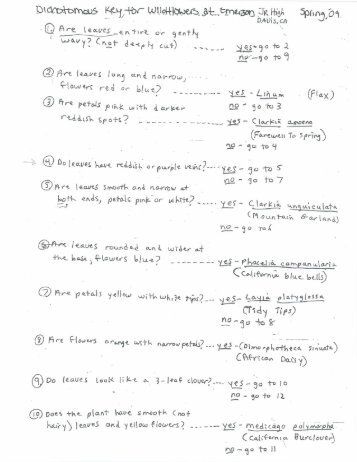 Dichotomous Key for Wildflowers at Emerson Jr High Spring, 09
DAVIS, CA
① Are leaves entire or gently
wavy? (not deeply cut) ---- yes - go to 2
no - go to 9
② Are leaves long and narrow,
flowers red or blue? ---- yes - Linum (Flax)
no - go to 3
③ Are petals pink with darker
reddish spots? ---- yes - Clarkia amoena
(Farewell To Spring)
no - go to 4
→ ④ Do leaves have reddish or purple veins? --- yes - go to 5
no - go to 7
⑤ Are leaves smooth and narrow at
both ends, petals pink or white? ---- yes - Clarkia unguiculata
(Mountain Garland)
no - go to 6
⑥ Are leaves rounded and wider at
the base, flowers blue? ---- yes - Phacelia campanularia
(California blue bells)
⑦ Are petals yellow with white tips? --- yes - Layia platyglossa
(Tidy Tips)
no - go to 8
⑧ Are flowers orange with narrow petals? --- yes - (Dimorphotheca sinuata)
(African Daisy)
⑨ Do leaves look like a 3-leaf clover? --- yes - go to 10
no - go to 12
⑩ Does the plant have smooth (not
hairy) leaves and yellow flowers? ---- yes - medicago polymorpha
(California Burclover)
no - go to 11